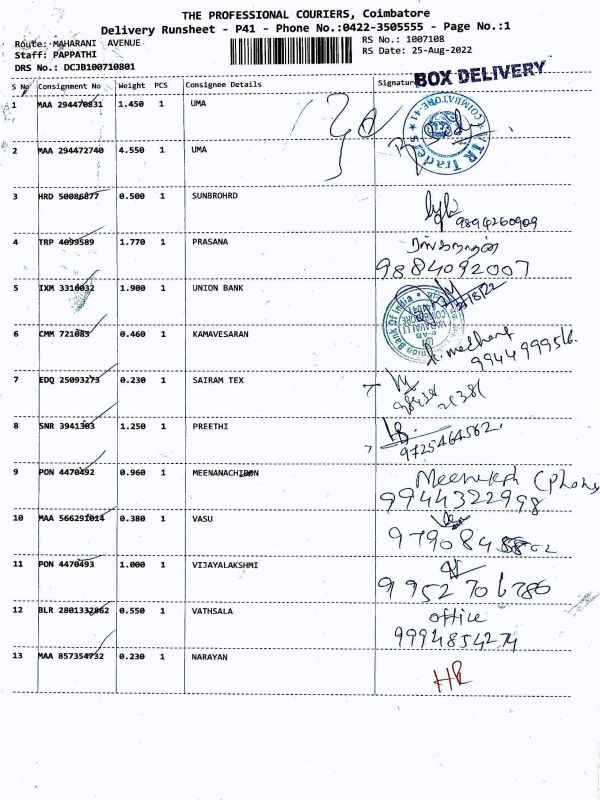 THE PROFESSIONAL COURIERS, Coimbatore
Delivery Runsheet - P41 - Phone No.:0422-3505555 - Page No.:1
Route: MAHARANI AVENUE
RS No.: 1007108
Staff: PAPPATHI
RS Date: 25-Aug-2022
DRS No.: DCJB100710801
BOX DELIVERY
S No Consignment No Weight PCS Consignee Details Signature
1 MAA 294470831 1.450 1 UMA
COIMBATORE-41
2 MAA 294472740 4.550 1 UMA
3 HRD 50086877 0.500 1 SUNBROHRD
9894260909
4 TRP 4099589 1.770 1 PRASANA
9884092007
5 IXM 3316032 1.900 1 UNION BANK
6 CMM 721083 0.460 1 KAMAVESARAN
7 EDQ 25093273 0.230 1 SAIRAM TEX
8 SNR 3941303 1.250 1 PREETHI
9725464562
9 PON 4470492 0.960 1 MEENANACHIDON
9944322998
10 MAA 566291014 0.380 1 VASU
11 PON 4470493 1.000 1 VIJAYALAKSHMI
9952706786
12 BLR 2801332862 0.550 1 VATHSALA office
9994854274
13 MAA 857354732 0.230 1 NARAYAN
HR